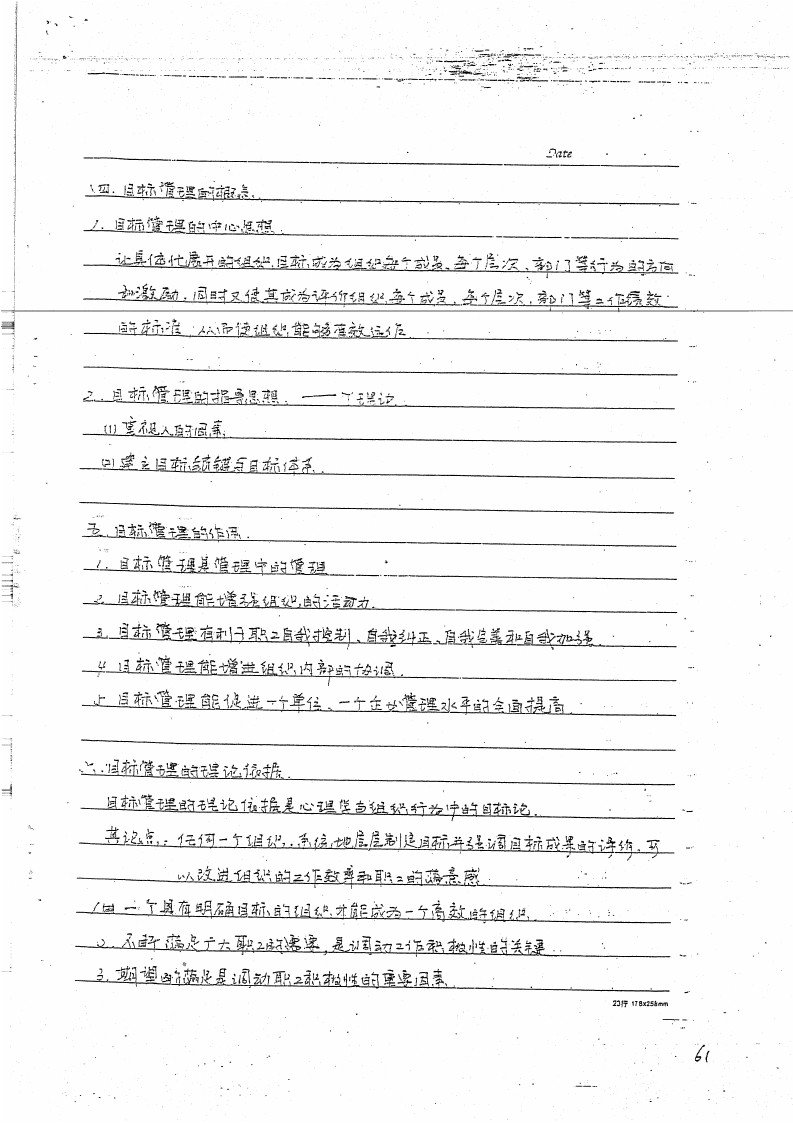 Date
四. 目标管理的概念.
1. 目标管理的中心思想.
让具体化展开的组织目标成为组织每个成员、每个层次、部门等行为的方向
和激励, 同时又使其成为评价组织每个成员、每个层次、部门等工作绩效
的标准, 从而使组织能够有效运作
2. 目标管理的指导思想. —— Y理论
(1) 重视人的因素
(2) 建立目标锁链与目标体系.
五. 目标管理的作用.
1. 目标管理是管理中的管理
2. 目标管理能增强组织的活动力.
3. 目标管理有利于职工自我控制、自我纠正、自我完善和自我加强.
4. 目标管理能增进组织内部的协调.
5. 目标管理能促进一个单位、一个企业管理水平的全面提高.
六. 目标管理的理论依据.
目标管理的理论依据是心理学与组织行为中的目标论.
其论点: 任何一个组织, 系统地层层制定目标并强调目标成果的评价, 可
以改进组织的工作效率和职工的满意感
1. 一个具有明确目标的组织才能成为一个高效的组织.
2. 不断满足广大职工的需要, 是调动工作积极性的关键.
3. 期望的满足是调动职工积极性的重要因素.
23行 178x258mm
61